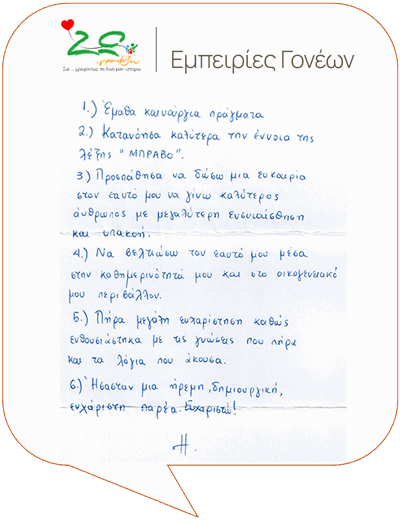 Ζω ... γράφοντας τη δική μου ιστορία
Εμπειρίες Γονέων
1.) Έμαθα καινούργια πράγματα
2.) Κατανόησα καλύτερα την έννοια της
λέξης "ΜΠΡΑΒΟ".
3) Προσπάθησα να δώσω μια ευκαιρία
στον εαυτό μου να γίνω καλύτερος
άνθρωπος με μεγαλύτερη ευσυναίσθηση
και υπακοή.
4.) Να βελτιώσω τον εαυτό μου μέσα
στην καθημερινότητά μου και στο οικογενειακό
μου περιβάλλον.
5.) Πήρα μεγάλη ευχαρίστηση καθώς
ενθουσιάστηκα με τις γνώσεις που πήρα
και τα λόγια που άκουσα.
6.) Ήσασταν μια ήρεμη, δημιουργική,
ευχάριστη παρέα. Ευχαριστώ!
Η.